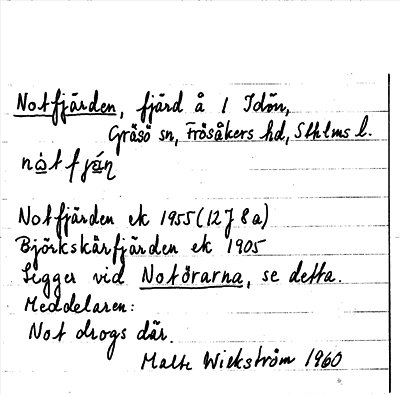 Notfjärden, fjärd å 1 Idön,
Gräsö sn, Frösåkers hd, Sthlms l.
Notfjärden ek 1955 (12J 8a)
Björkskärfjärden ek 1905
Ligger vid Notörarna, se detta.
Meddelaren:
Not drogs där.
Malte Wickström 1960